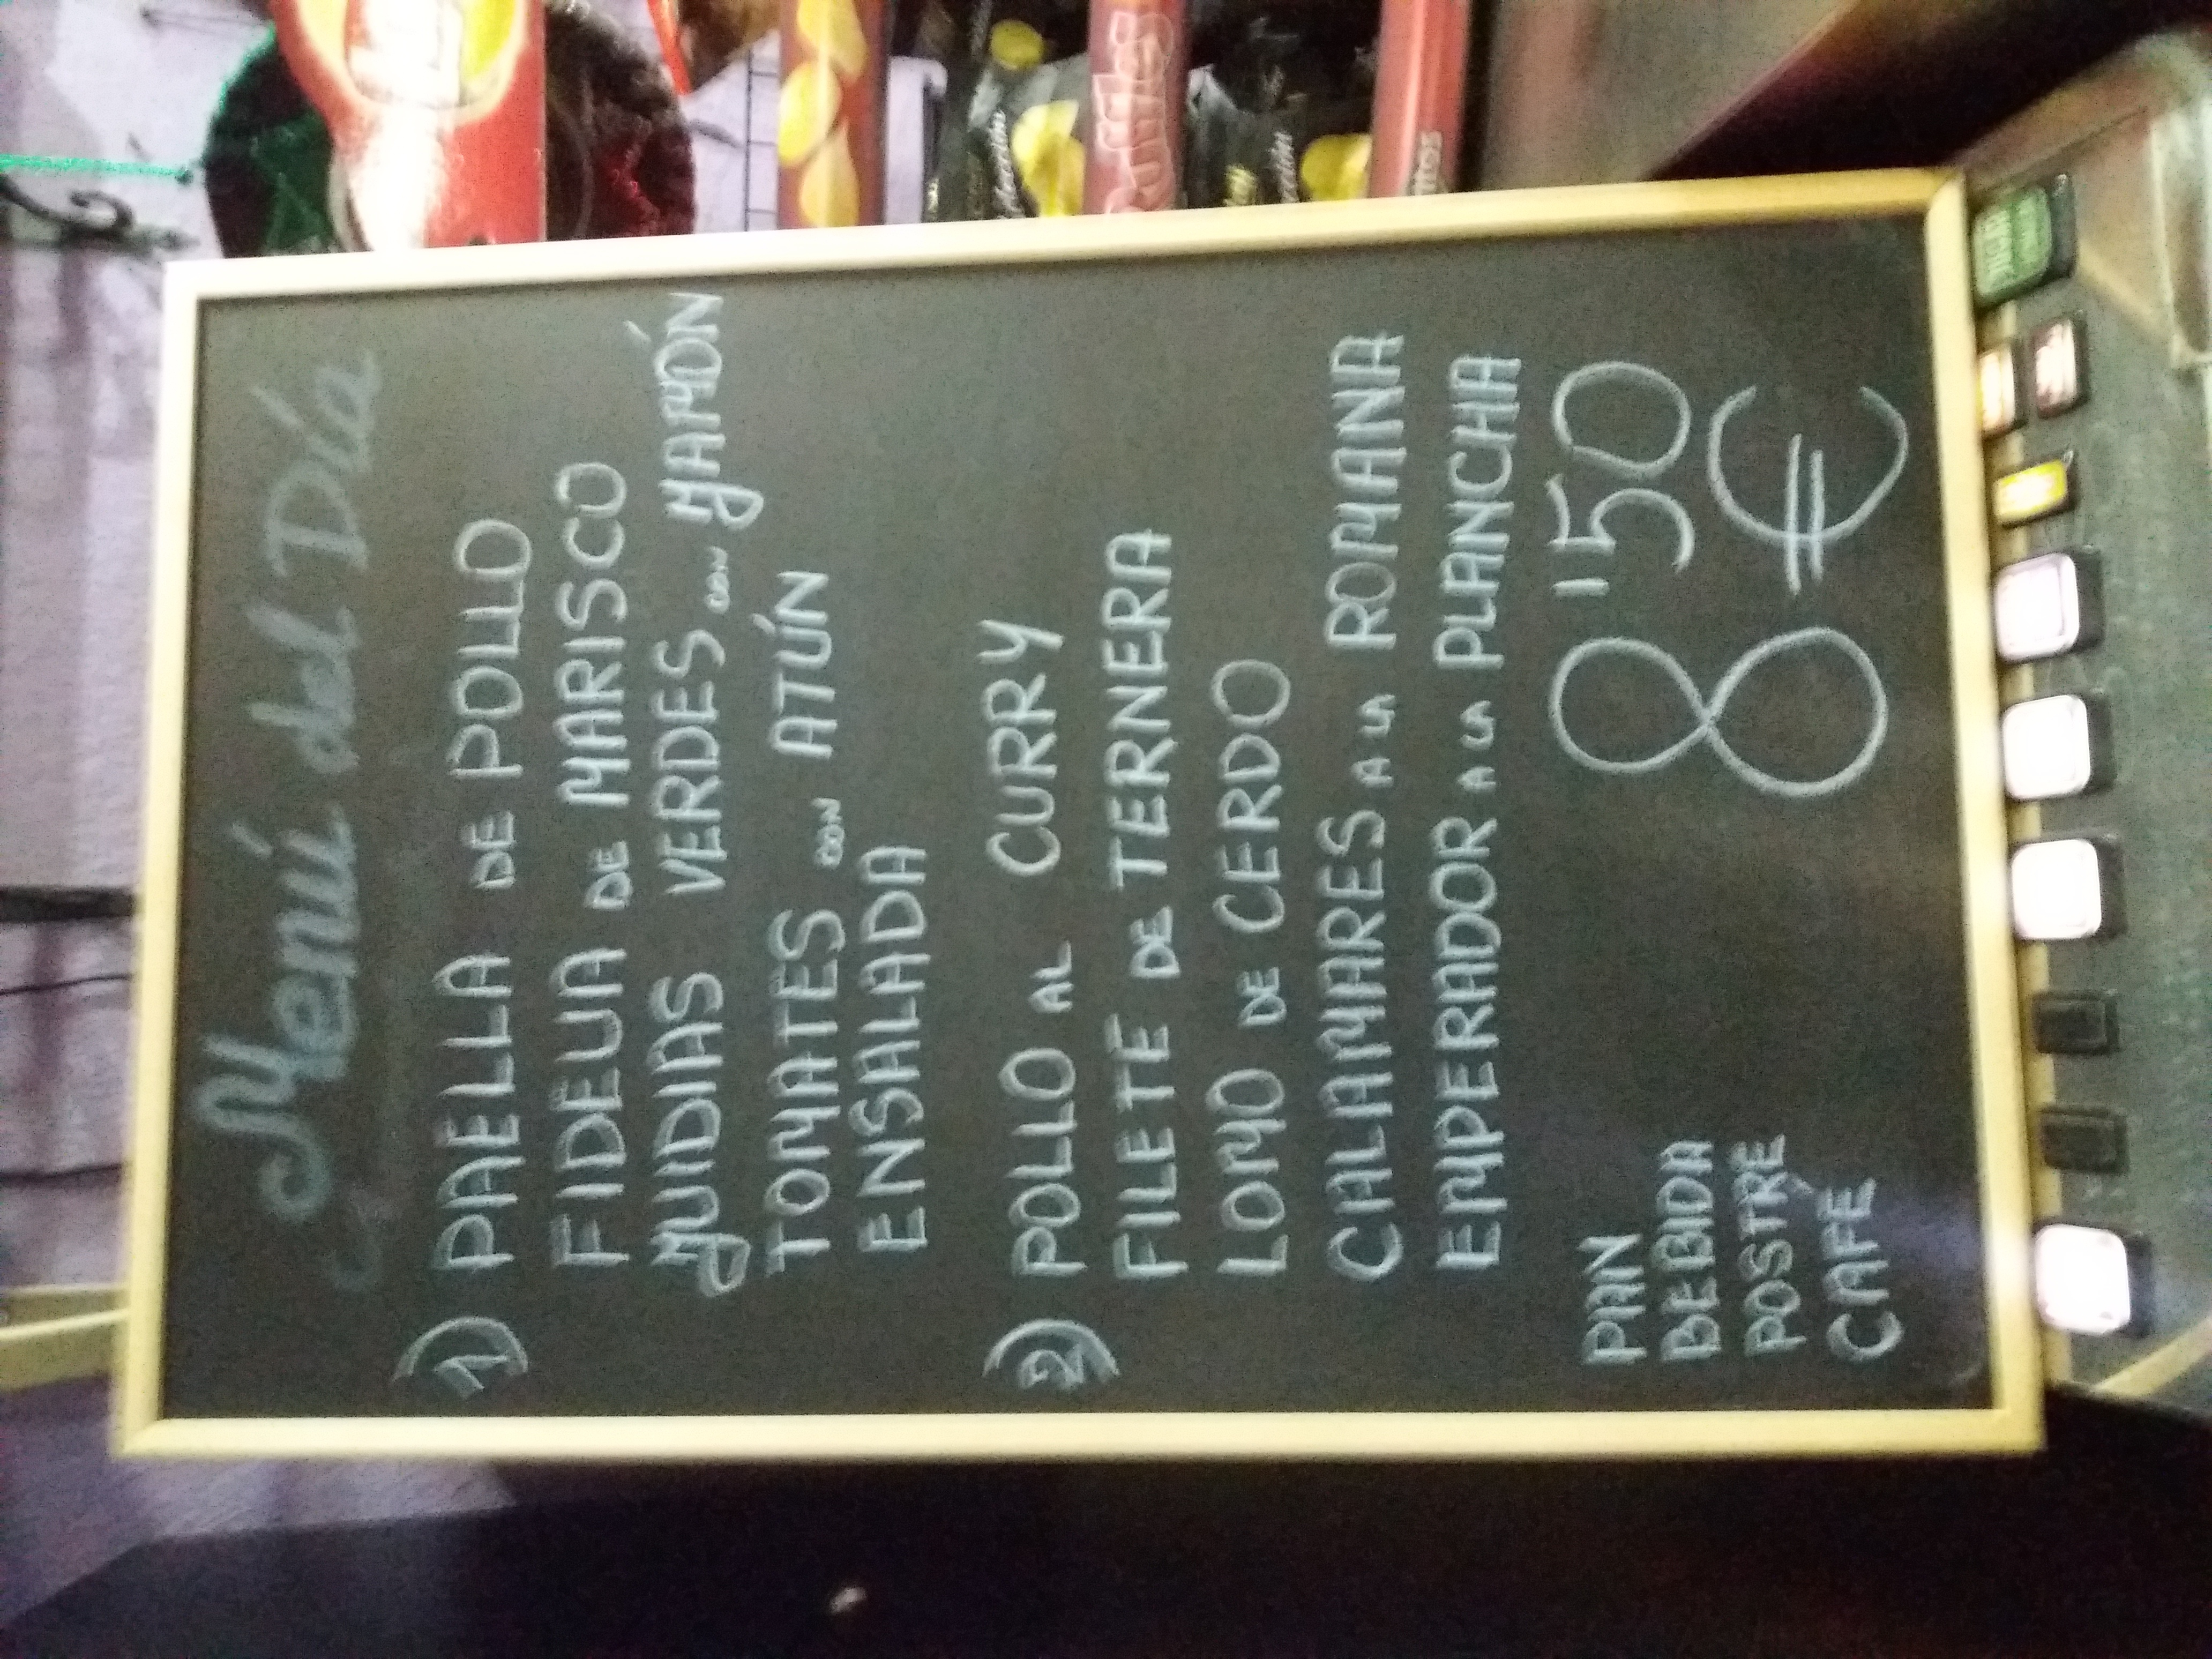 Menú del Día
1) PAELLA DE POLLO
FIDEUA DE MARISCO
JUDIAS VERDES CON JAMÓN
TOMATES CON ATÚN
ENSALADA
2) POLLO AL CURRY
FILETE DE TERNERA
LOMO DE CERDO
CALAMARES A LA ROMANA
EMPERADOR A LA PLANCHA
PAN
BEBIDA
POSTRE
CAFE
8'50 €
Ruffles